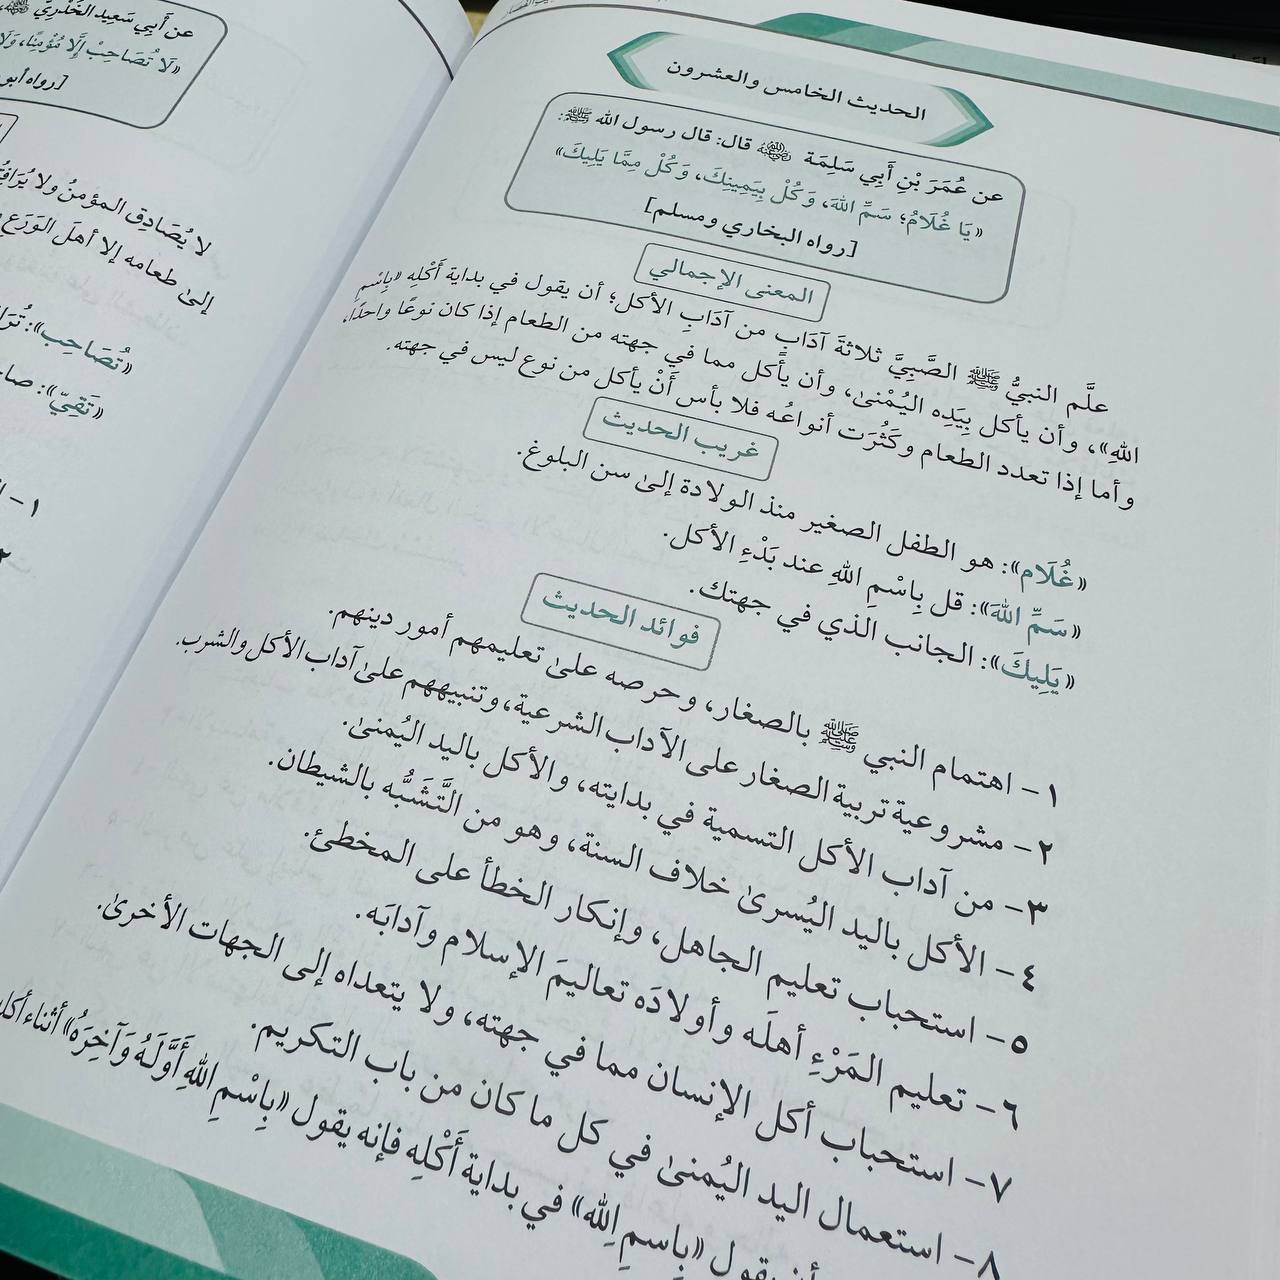 الحديث الخامس والعشرون
عن عُمَرَ بْنِ أَبِي سَلِمَة رضي الله عنه قال: قال رسول الله ﷺ:
«يَا غُلَامُ؛ سَمِّ اللهَ، وَكُلْ بِيَمِينِكَ، وَكُلْ مِمَّا يَلِيكَ»
[رواه البخاري ومسلم]
المعنى الإجمالي
علَّم النبيُّ ﷺ الصَّبِيَّ ثلاثةَ آدَابٍ من آدَابِ الأكل؛ أن يقول في بداية أَكْلِهِ «بِاسْمِ
اللهِ»، وأن يأكل بِيَدِه اليُمْنىٰ، وأن يأكل مما في جهته من الطعام إذا كان نوعًا واحدًا،
وأما إذا تعدد الطعام وكَثُرَت أنواعُه فلا بأس أَنْ يأكل من نوع ليس في جهته.
غريب الحديث
«غُلَام»: هو الطفل الصغير منذ الولادة إلىٰ سن البلوغ.
«سَمِّ اللهَ»: قل بِاسْمِ اللهِ عند بَدْءِ الأكل.
«يَلِيكَ»: الجانب الذي في جهتك.
فوائد الحديث
١- اهتمام النبي ﷺ بالصغار، وحرصه علىٰ تعليمهم أمور دينهم.
٢- مشروعية تربية الصغار على الآداب الشرعية، وتنبيههم علىٰ آداب الأكل والشرب.
٣- من آداب الأكل التسمية في بدايته، والأكل باليد اليُمنىٰ.
٤- الأكل باليد اليُسرىٰ خلاف السنة، وهو من التَّشَبُّه بالشيطان.
٥- استحباب تعليم الجاهل، وإنكار الخطأ على المخطئ.
٦- تعليم المَرْءِ أهلَه وأولادَه تعاليمَ الإسلام وآدابَه.
٧- استحباب أكل الإنسان مما في جهته، ولا يتعداه إلى الجهات الأخرىٰ.
٨- استعمال اليد اليُمنىٰ في كل ما كان من باب التكريم.
أن يقول «بِاسمِ اللهِ» في بداية أَكْلِهِ فإنه يقول «بِاسْمِ اللهِ أَوَّلَهُ وَآخِرَهُ» أثناء
عن أَبِي سَعِيد الخُدْرِيِّ
«لَا تُصَاحِبْ إِلَّا مُؤْمِنًا،
[رواه أبو
لا يُصَادِق المؤمنُ ولا
إلىٰ طعامه إلا أهلَ الوَرَع
«تُصَاحِب»:
«تَقِيّ»:
١-
٢